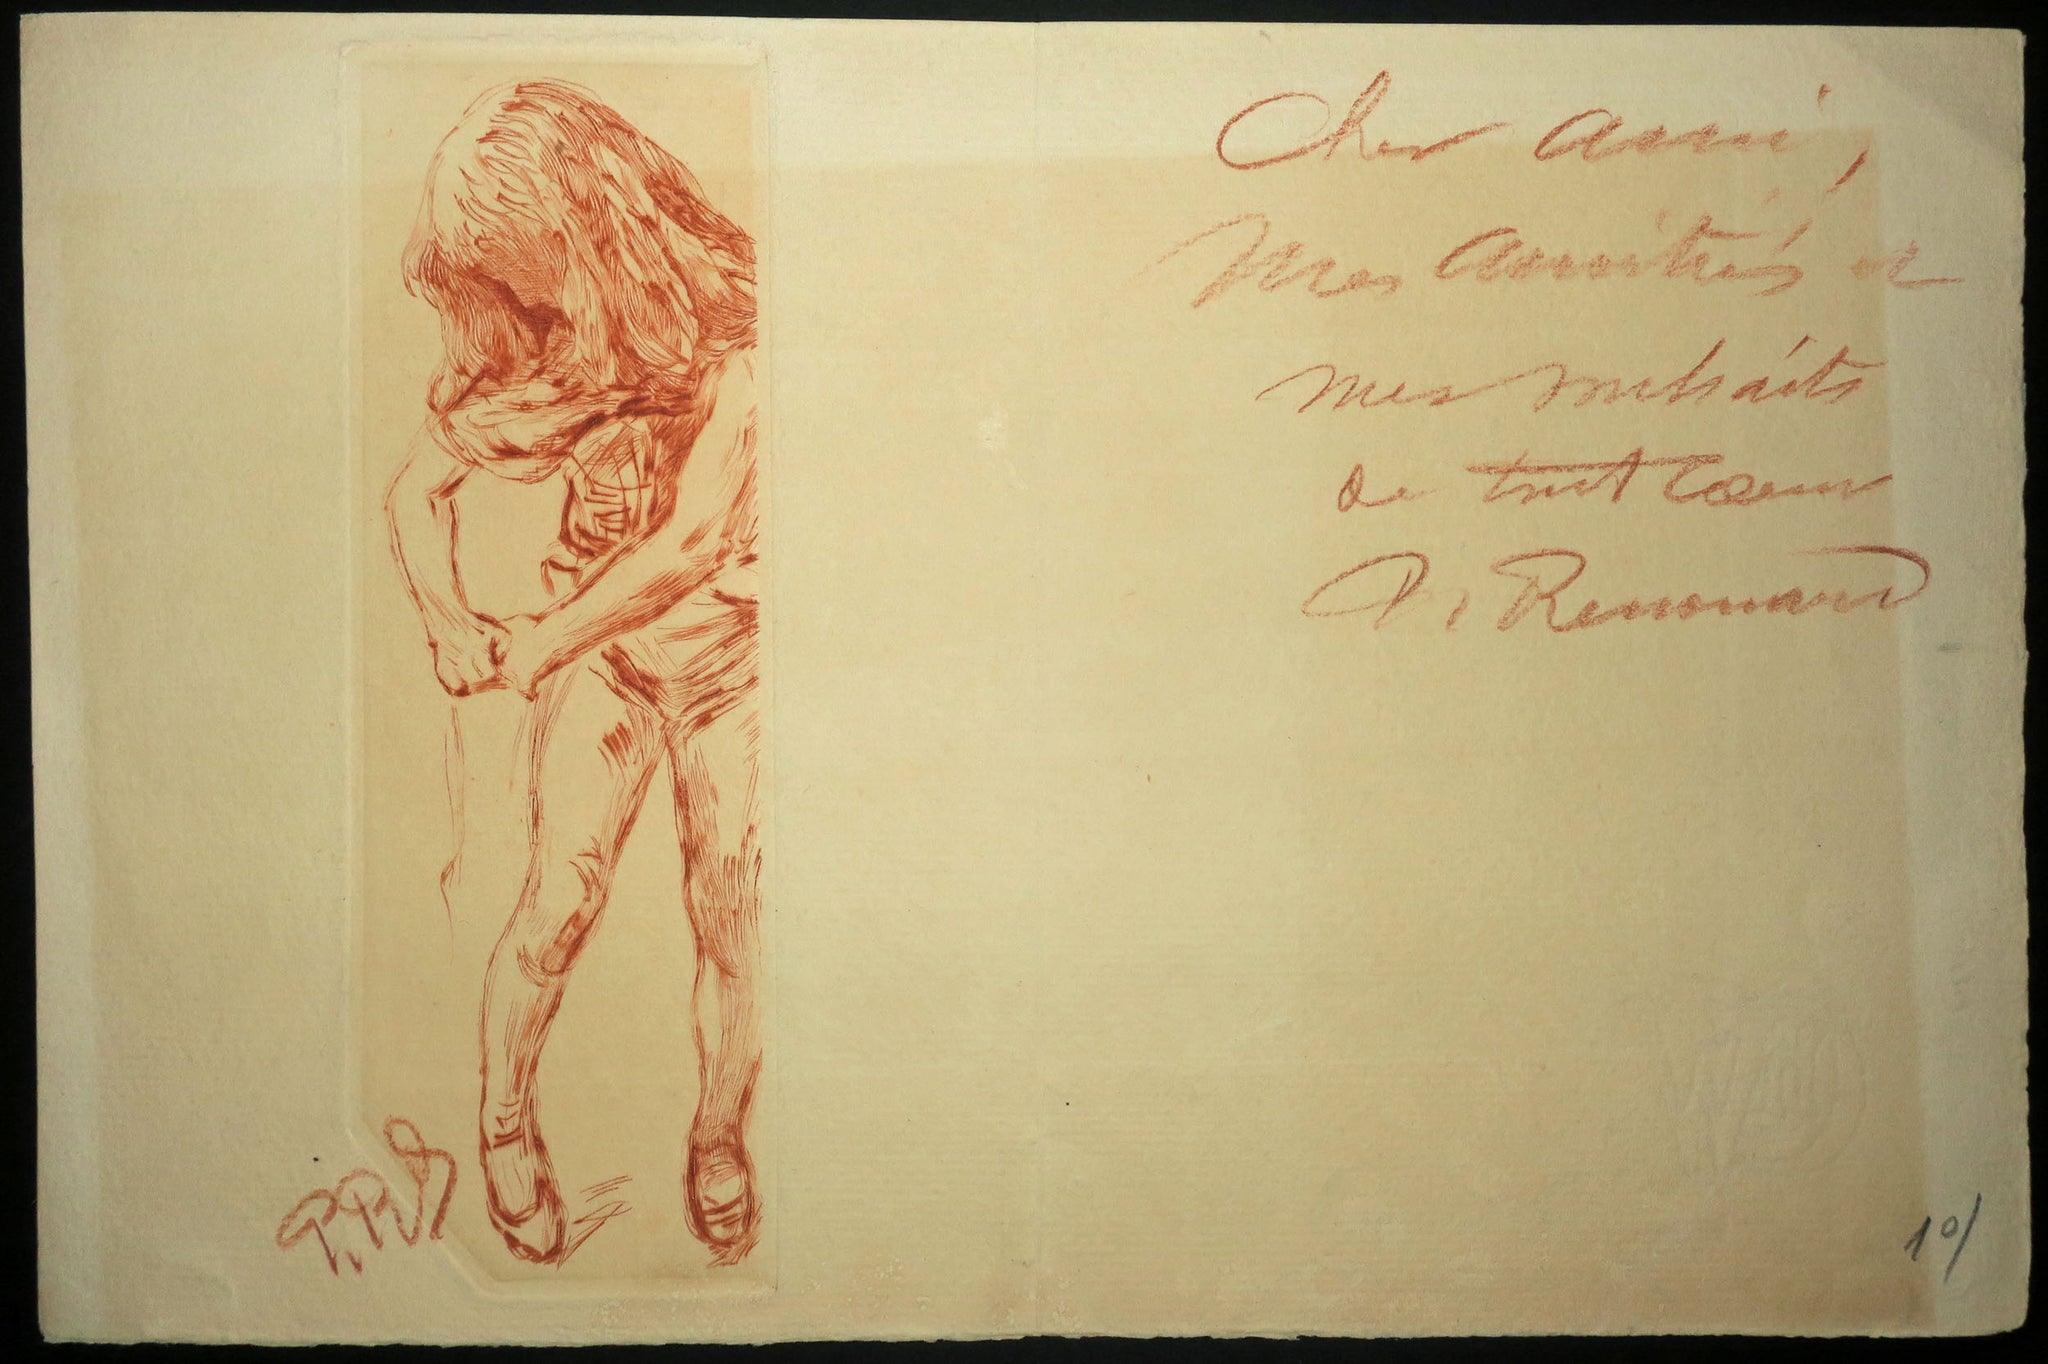 Cher ami,
Mes amitiés et
mes souhaits
de tout cœur
P. Renouard
P. R
10/